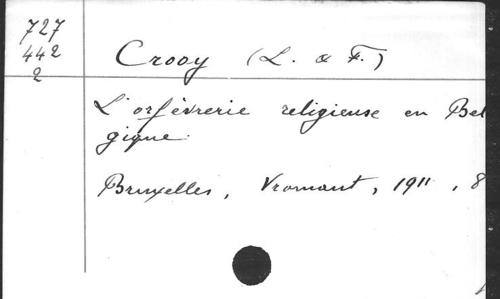 727
442
2
Crooy (L. & F.)
L'orfèvrerie religieuse en Bel
gique.
Bruxelles, Vromant, 1911, 8